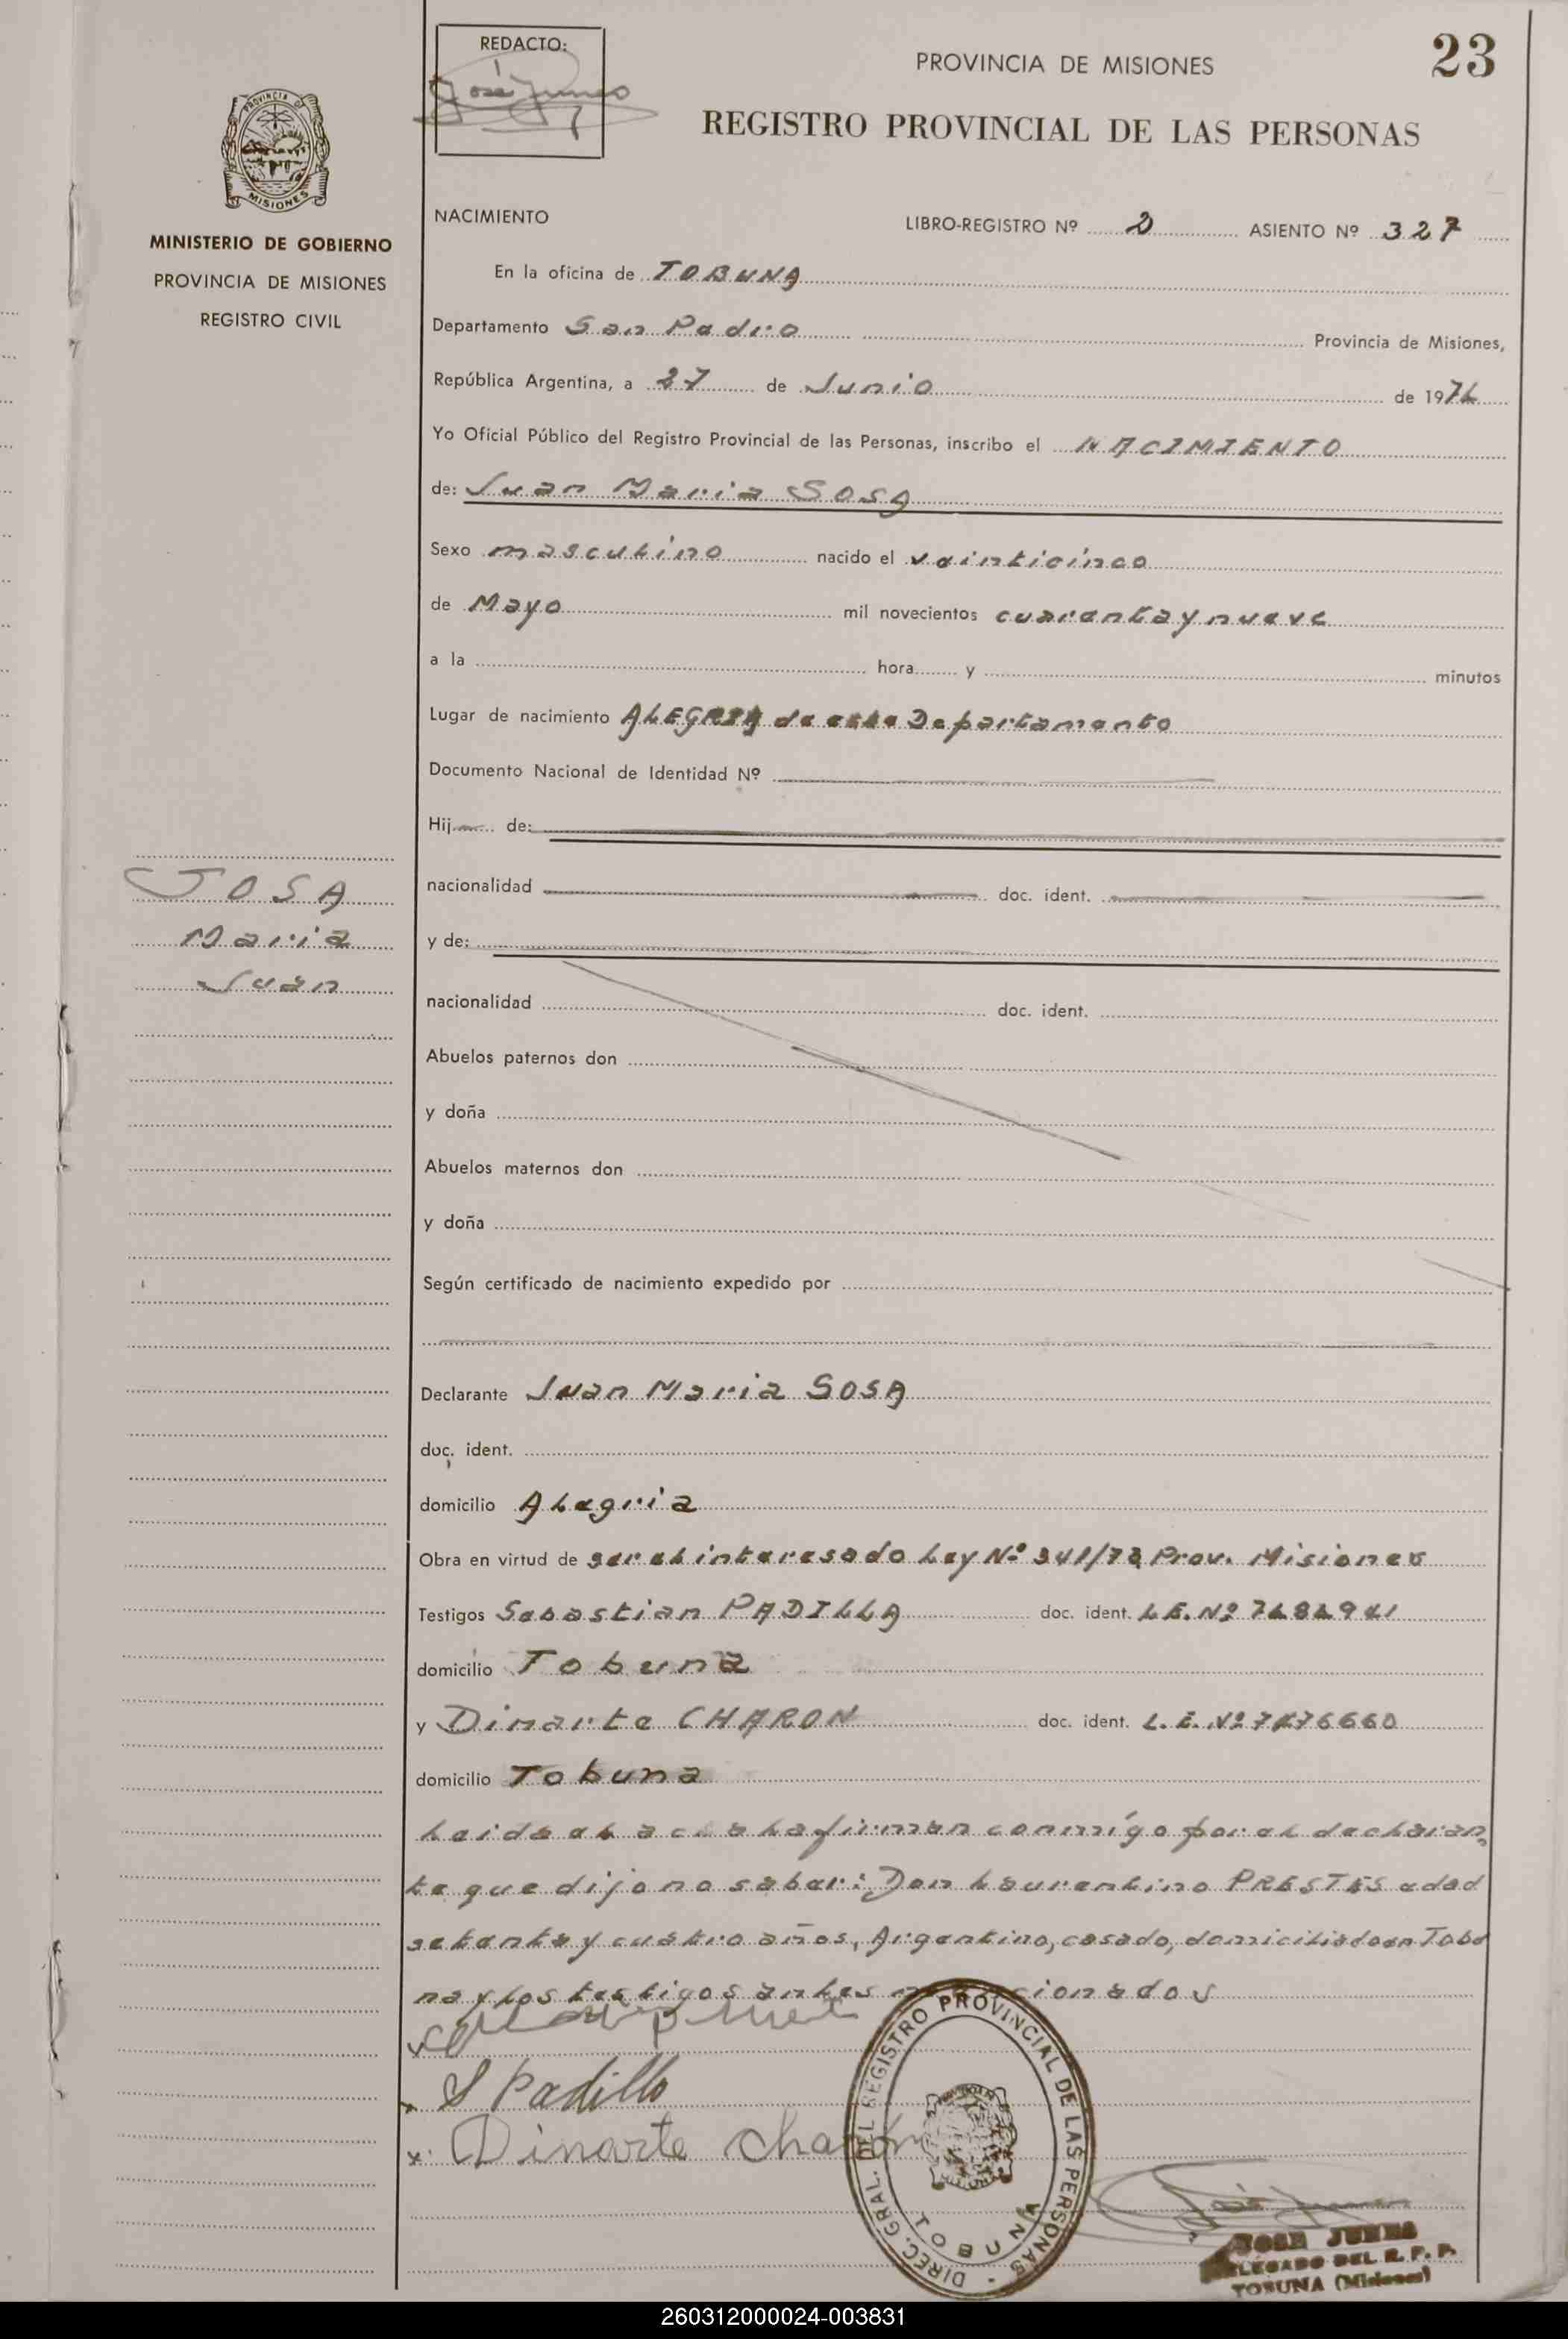 REDACTO:
José Junes
PROVINCIA DE MISIONES
23
REGISTRO PROVINCIAL DE LAS PERSONAS
PROVINCIA DE
MISIONES
MINISTERIO DE GOBIERNO
PROVINCIA DE MISIONES
REGISTRO CIVIL
NACIMIENTO LIBRO-REGISTRO Nº 2 ASIENTO Nº 327
En la oficina de TOBUNA
Departamento San Pedro Provincia de Misiones,
República Argentina, a 27 de Junio de 1974
Yo Oficial Público del Registro Provincial de las Personas, inscribo el NACIMIENTO
de: Juan Maria SOSA
Sexo masculino nacido el veinticinco
de Mayo mil novecientos cuarenta y nueve
a la hora y minutos
Lugar de nacimiento ALEGRIA de este Departamento
Documento Nacional de Identidad Nº
Hij de:
nacionalidad doc. ident.
SOSA
Maria
Juan
y de:
nacionalidad doc. ident.
Abuelos paternos don
y doña
Abuelos maternos don
y doña
Según certificado de nacimiento expedido por
Declarante Juan Maria SOSA
doc. ident.
domicilio Alegria
Obra en virtud de ser el interesado Ley Nº 341/73 Prov. Misiones
Testigos Sebastian PADILLA doc. ident. L.E. Nº
domicilio Tobuna
y Dinarte CHARON doc. ident. L.E. Nº 7476660
domicilio Tobuna
Leida el acta la firman conmigo por el declaran
te que dijo no saber: Don Laurentino PRESTES edad
setenta y cuatro años, Argentino, casado, domiciliado en Tobu
na y los testigos antes mencionados
S Padillo
x. Dinarte Charon
DIREC. GRAL. DEL REGISTRO PROVINCIAL DE LAS PERSONAS -
TOBUNA
JOSE JUNES
DELEGADO DEL R. P. P.
TOBUNA (Misiones)
260312000024-003831